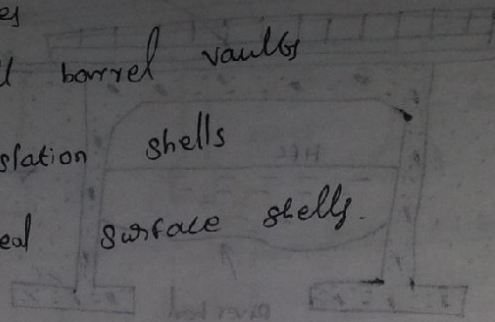 es
l barrel vaults
slation shells
eal surface shells.